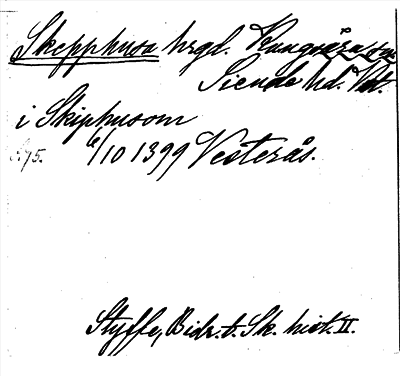 Skepphusa hrgd. Kungsåra sn
Siende hd. Vstm.
i Skiphusom
6/10 1399 Vesterås.
Styffe, Bidr. t. Sk. hist. II.